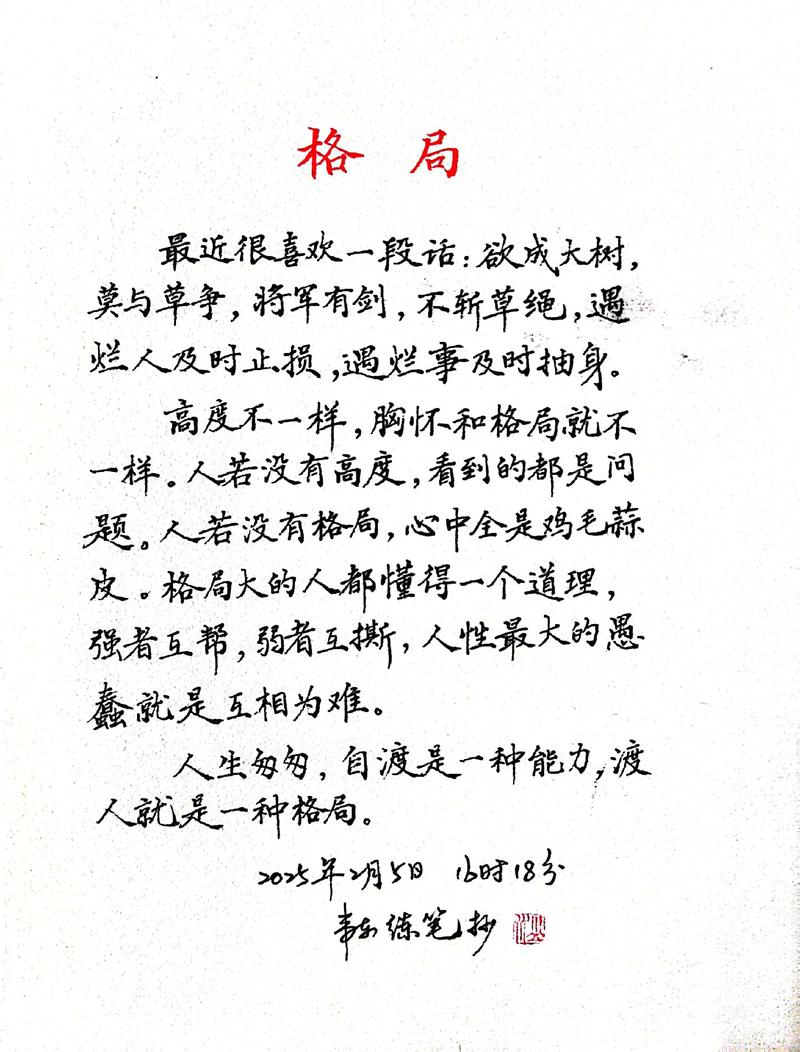 格局
最近很喜欢一段话：欲成大树，
莫与草争，将军有剑，不斩草绳，遇
烂人及时止损，遇烂事及时抽身。
高度不一样，胸怀和格局就不
一样。人若没有高度，看到的都是问
题。人若没有格局，心中全是鸡毛蒜
皮。格局大的人都懂得一个道理，
强者互帮，弱者互撕，人性最大的愚
蠢就是互相为难。
人生匆匆，自渡是一种能力，渡
人就是一种格局。
2025年2月5日 16时18分
练笔抄